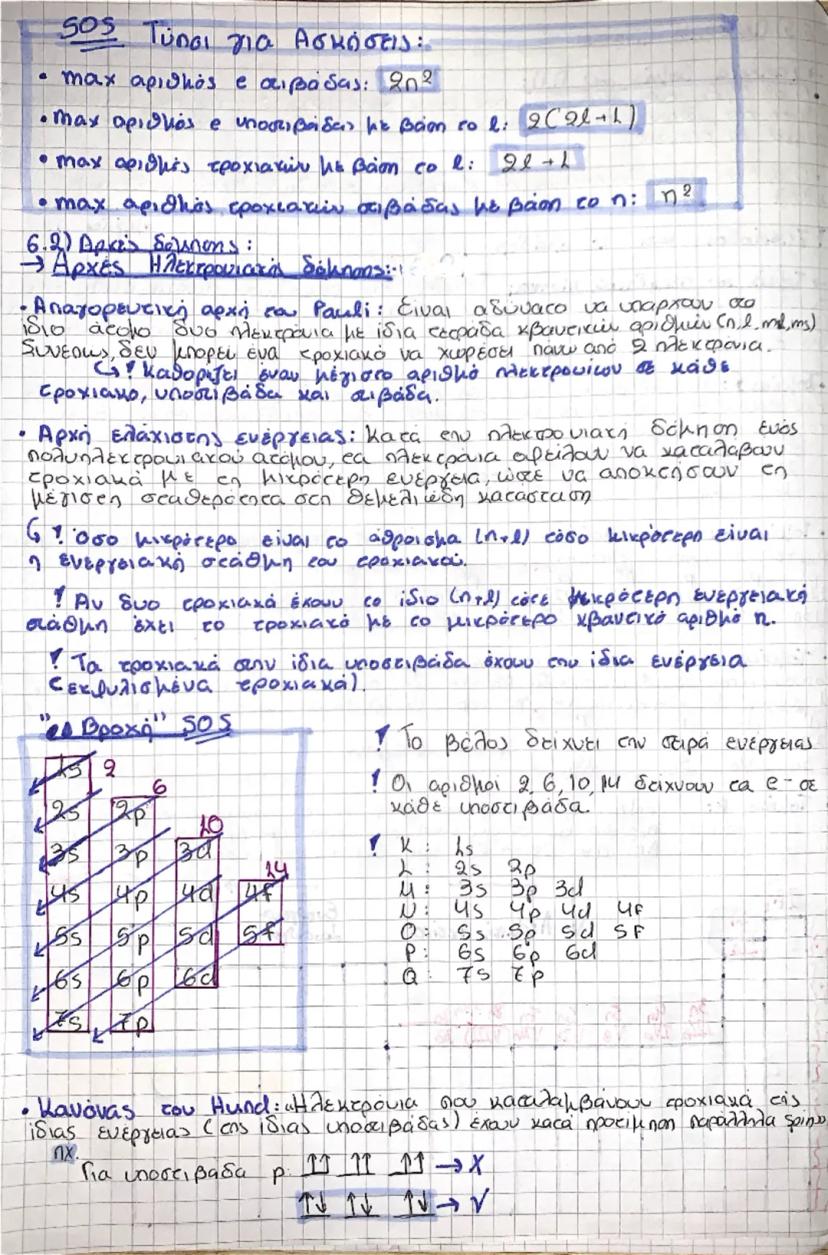 SOS Τύποι για Ασκήσεις:
• max αριθμός e στιβάδας: 2n²
• max αριθμός e υποστιβάδας με βάση το l: 2(2l+1)
• max αριθμός τροχιακών με βάση το l: 2l+1
• max αριθμός τροχιακών στιβάδας με βάση το n: n²
6.2) Αρχές δόμησης:
→ Αρχές Ηλεκτρονιακής δόμησης:
• Απαγορευτική αρχή του Pauli: Είναι αδύνατο να υπάρχουν στο
ίδιο άτομο δυο ηλεκτρόνια με ίδια τετράδα κβαντικών αριθμών (n,l,ml,ms)
Συνεπώς, δεν μπορεί ένα τροχιακό να χωρέσει πάνω από 2 ηλεκτρόνια.
↳ ! Καθορίζει έναν μέγιστο αριθμό ηλεκτρονίων σε κάθε
τροχιακό, υποστιβάδα και στιβάδα.
• Αρχή ελάχιστης ενέργειας: Κατά την ηλεκτρονιακή δόμηση ενός
πολυηλεκτρονιακού ατόμου, τα ηλεκτρόνια οφείλουν να καταλάβουν
τροχιακά με τη μικρότερη ενέργεια, ώστε να αποκτήσουν τη
μέγιστη σταθερότητα στη θεμελιώδη κατάσταση
↳ ! Όσο μικρότερο είναι το άθροισμα (n+l) τόσο μικρότερη είναι
η ενεργειακή στάθμη του τροχιακού.
! Αν δυο τροχιακά έχουν το ίδιο (n+l) τότε μικρότερη ενεργειακή
στάθμη έχει το τροχιακό με το μικρότερο κβαντικό αριθμό n.
! Τα τροχιακά στην ίδια υποστιβάδα έχουν την ίδια ενέργεια
(εκφυλισμένα τροχιακά).
Βροχή" SOS
! Το βέλος δείχνει την σειρά ενέργειας
! Οι αριθμοί 2, 6, 10, 14 δείχνουν τα e⁻ σε
κάθε υποστιβάδα.
1s 2
6
2s 2p
10
3s 3p 3d
14
4s 4p 4d 4f
5s 5p 5d 5f
6s 6p 6d
7s 7p
! K: 1s
L: 2s 2p
M: 3s 3p 3d
N: 4s 4p 4d 4f
O: 5s 5p 5d 5f
P: 6s 6p 6d
Q: 7s 7p
• Κανόνας του Hund: Ηλεκτρόνια που καταλαμβάνουν τροχιακά της
ίδιας ενέργειας (της ίδιας υποστιβάδας) έχουν κατά προτίμηση παράλληλα spin.
πχ.
Για υποστιβάδα p: ↑↑ ↑↑ ↑↑ → X
↑↓ ↑↓ ↑↓ → √